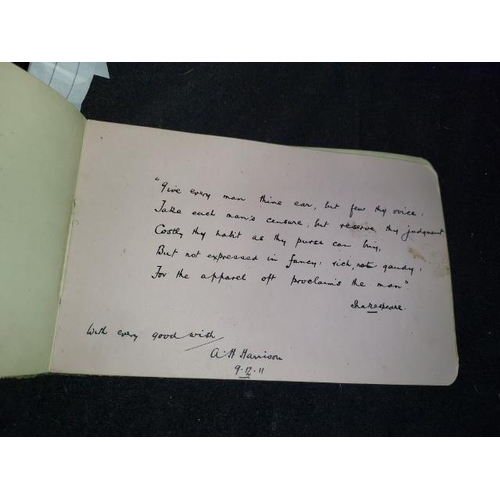 "Give every man thine ear, but few thy voice;
Take each man's censure, but reserve thy judgment
Costly thy habit as thy purse can buy,
But not expressed in fancy; rich, not gaudy;
For the apparel oft proclaims the man"
Shakespeare.
With every good wish
A. H. Harrison
9.12.11